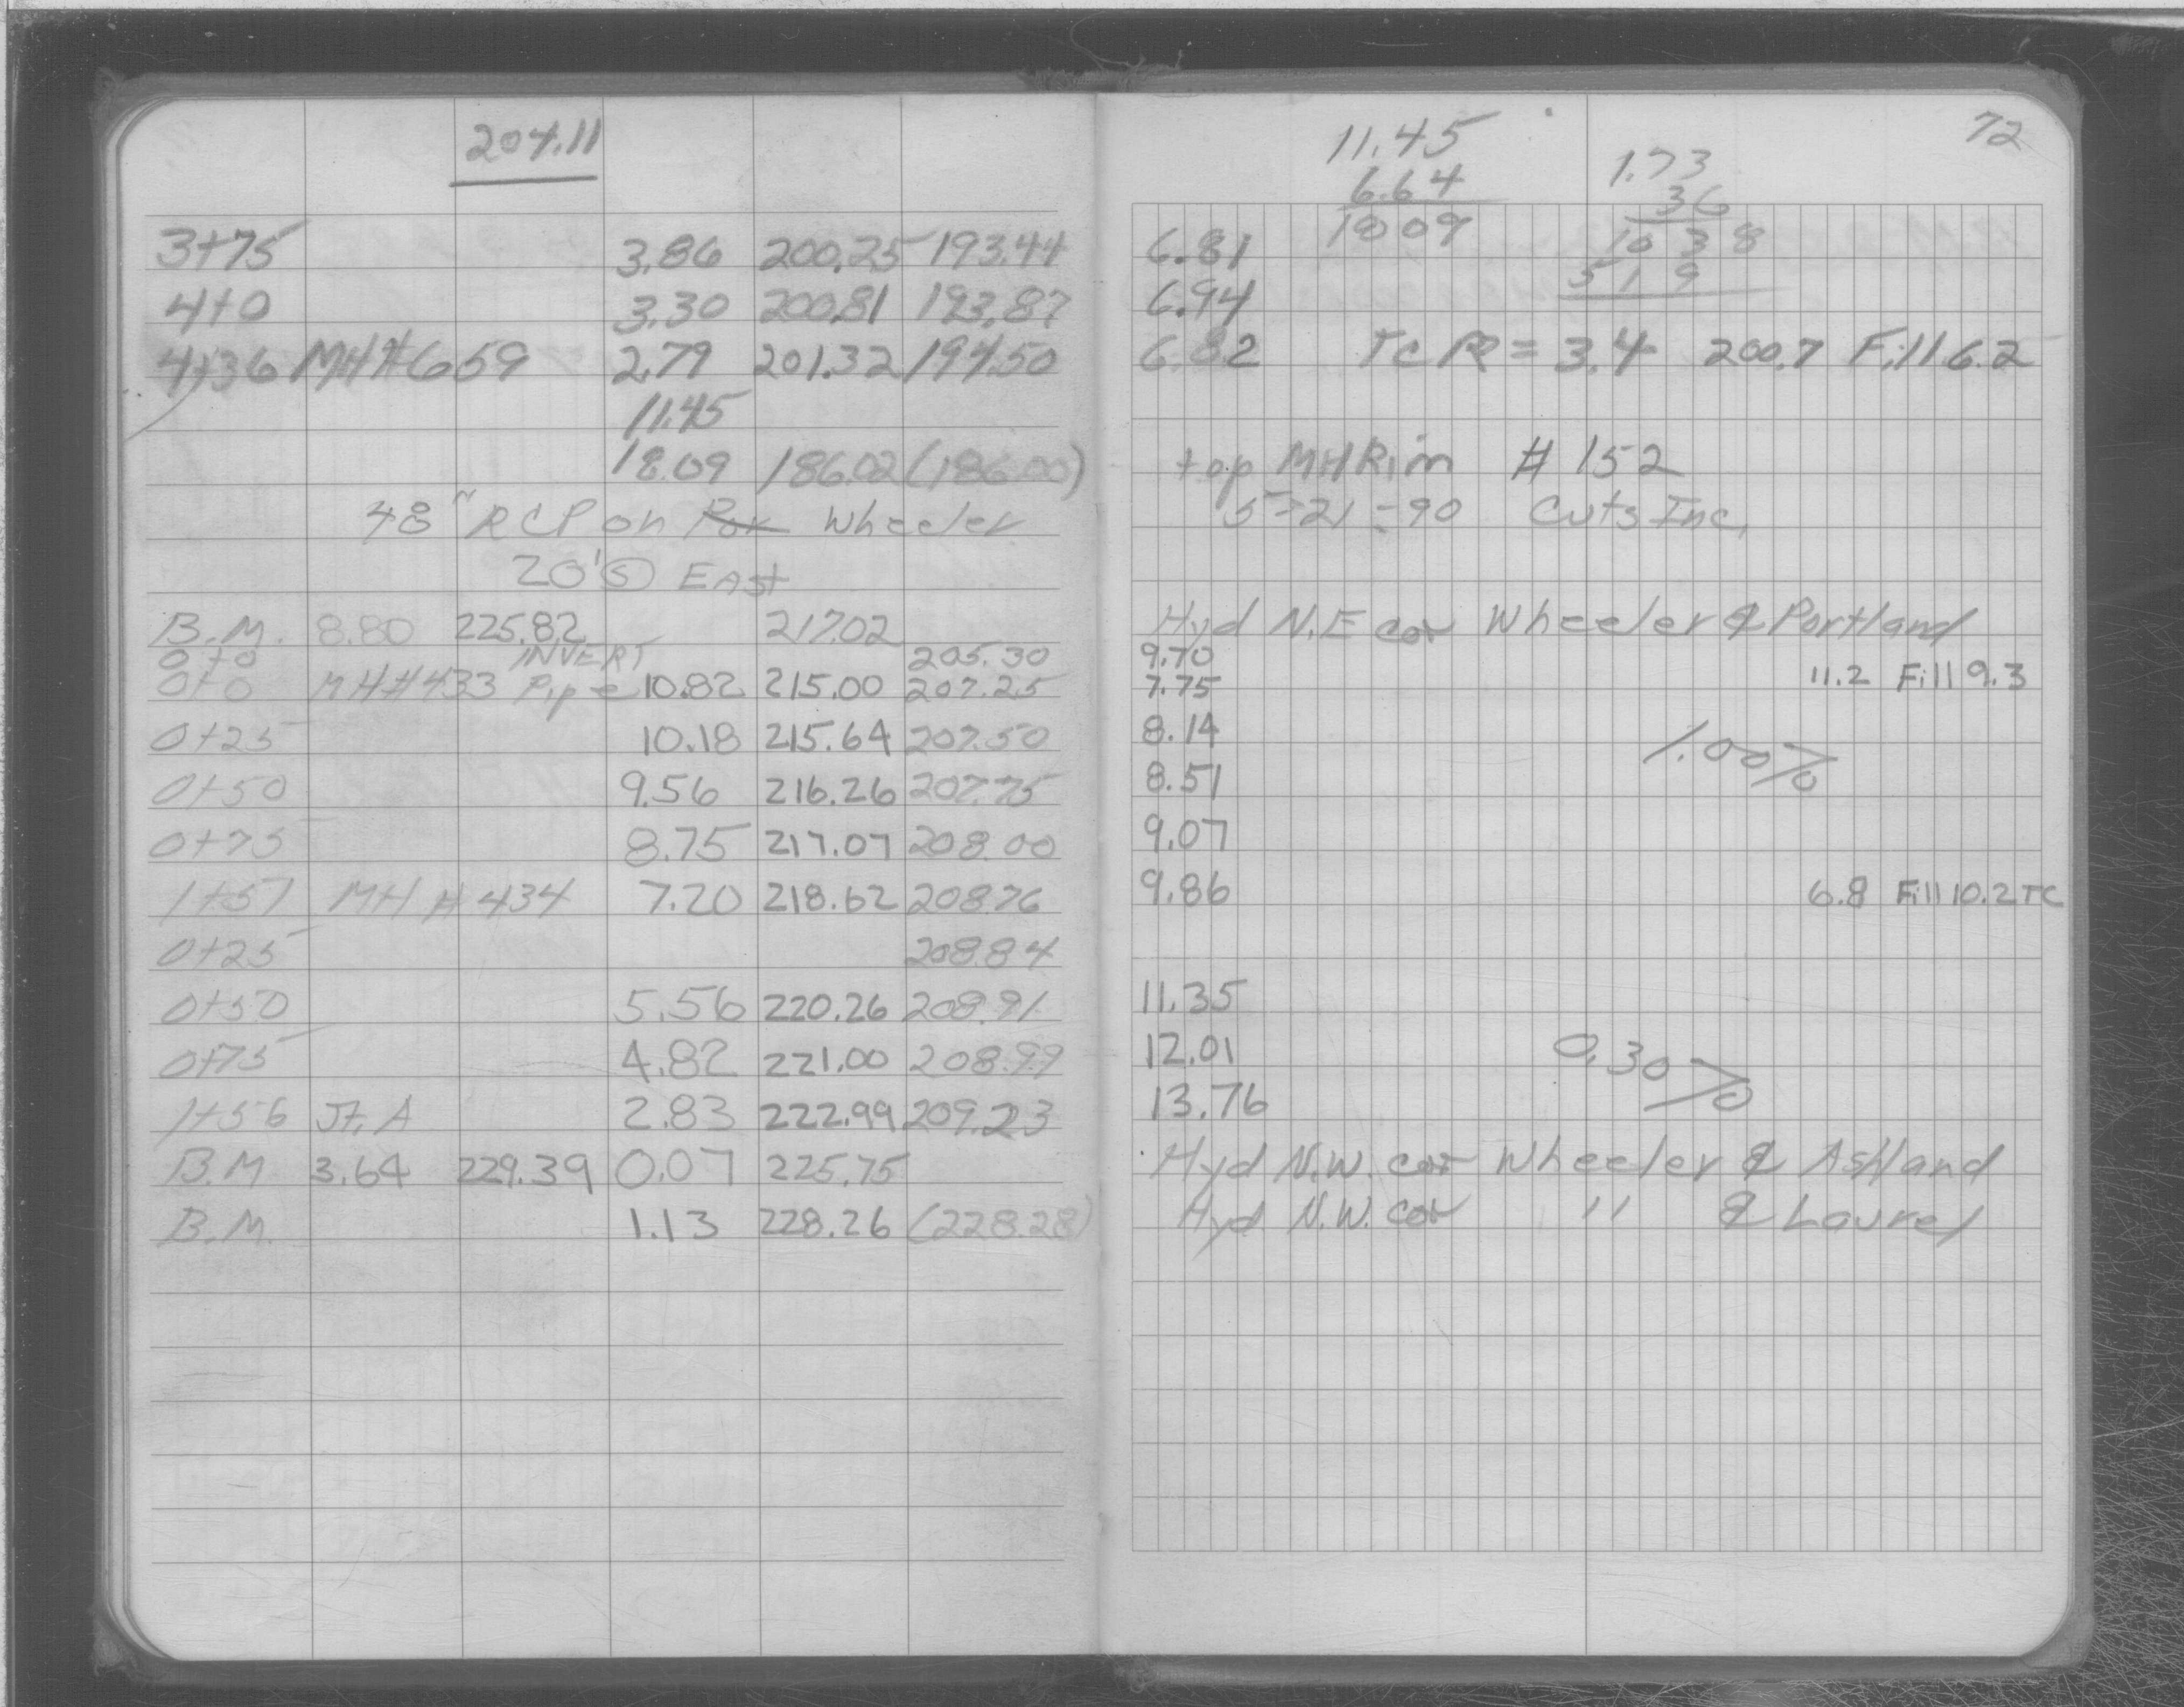 204.11
3+75 3.86 200.25 193.44
4+0 3.30 200.81 193.87
4+36 MH#659 2.79 201.32 194.50
11.45
18.09 186.02 (186.00)
48" RCP on Wheeler
20' S East
B.M. 8.80 225.82 217.02
0+0 INVERT 205.30
0+0 MH#433 Pipe 10.82 215.00 207.25
0+25 10.18 215.64 207.50
0+50 9.56 216.26 207.75
0+75 8.75 217.07 208.00
1+51 MH #434 7.20 218.62 208.76
0+25 208.84
0+50 5.56 220.26 208.91
0+75 4.82 221.00 208.99
1+56 Jt. A 2.83 222.99 209.23
B.M 3.64 229.39 0.07 225.75
B.M. 1.13 228.26 (228.28)
72
11.45
6.64
18 09
1.73
36
10 3 8
5 1 9
6.81
6.94
6.82 TC R = 3.4 200.7 Fill 6.2
top MH Rim # 152
5-21-90 Cuts Inc.
Hyd N.E cor Wheeler & Portland
9.70
7.75 11.2 Fill 9.3
8.14
1.00%
8.51
9.07
9.86 6.8 Fill 10.2 TC
11.35
12.01 0.30%
13.76
Hyd N.W. cor Wheeler & Ashland
Hyd N.W. cor " & Laurel